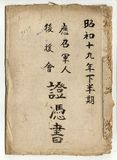 昭和十九年下半期
應召軍人
後援會
證憑書